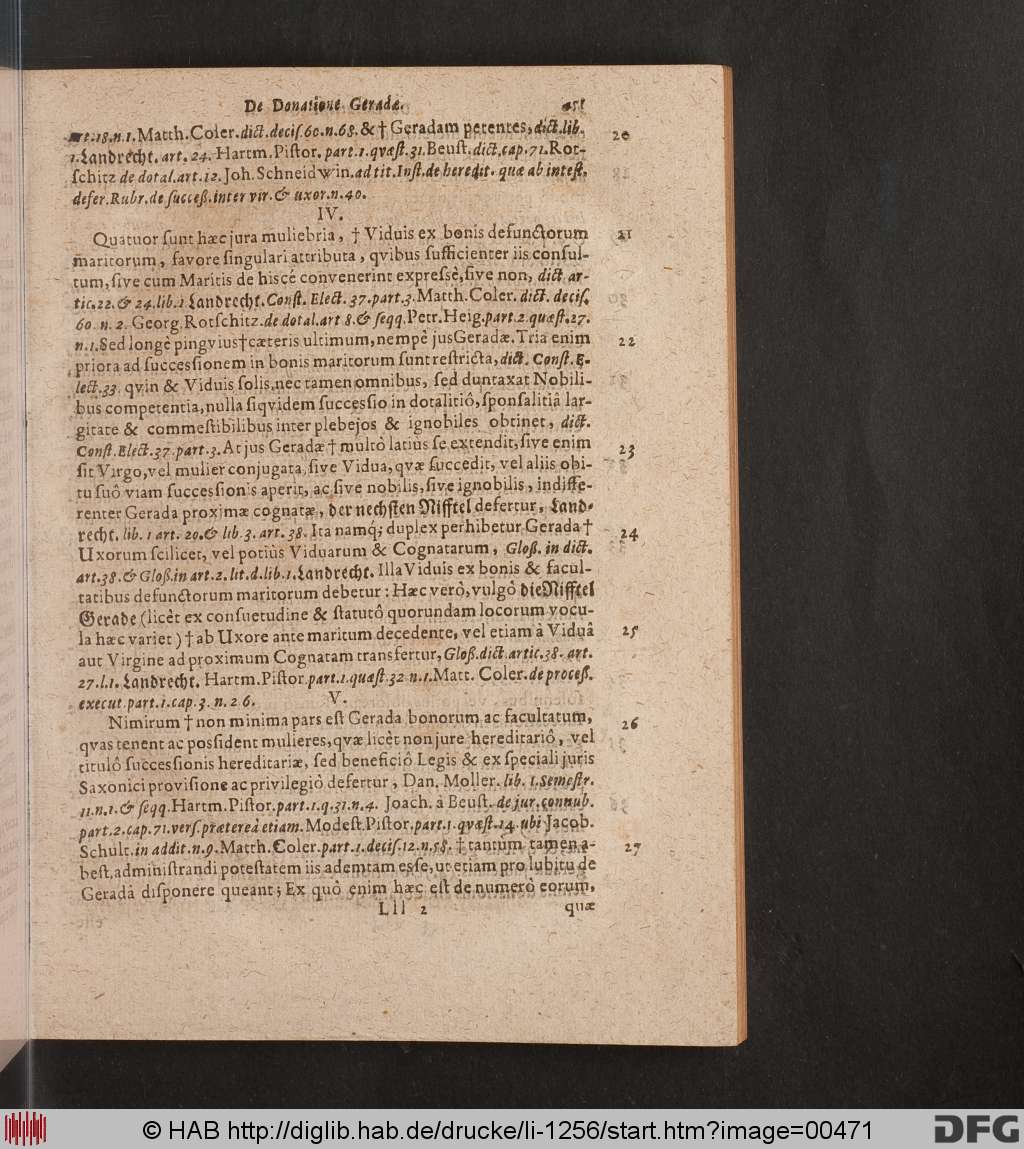 De Donatione Geradæ. 451
art.18.n.1. Matth.Coler. dict.decis.60.n.68. &† Geradam petentes, dict.lib. 20
1. Landrecht. art. 24. Hartm.Pistor. part.1.qvæst.31. Beust. dict.cap.71. Rot-
schitz de dotal.art.12. Joh. Schneidwin. ad tit. Inst. de heredit. quæ ab intest.
defer. Rubr. de success. inter vir. & uxor. n. 40.
IV.
Quatuor sunt hæc jura muliebria, † Viduis ex bonis defunctorum 21
maritorum, favore singulari attributa, qvibus sufficienter iis consul-
tum, sive cum Maritis de hiscé convenerint expressè, sive non, dict ar-
tic. 22. & 24. lib. 1 Landrecht. Const. Elect. 37. part. 3. Matth. Coler. dict. decis.
60. n. 2. Georg. Rotschitz. de dotal. art 8. & seqq. Petr. Heig. part. 2. quæst. 27.
n. 1. Sed longè pingvius † cæteris ultimum, nempè jus Geradæ. Tria enim 22
priora ad successionem in bonis maritorum sunt restricta, dict. Const. E-
lect. 33. qvin & Viduis solis, nec tamen omnibus, sed duntaxat Nobili-
bus competentia, nulla siqvidem successio in dotalitiô, sponsalitiâ lar-
gitate & commestibilibus inter plebejos & ignobiles obtinet, dict.
Const. Elect. 37. part. 3. At jus Geradæ † multò latius se extendit, sive enim 23
sit Virgo, vel mulier conjugata, sive Vidua, qvæ succedit, vel aliis obi-
tu suô viam successionis aperit, ac sive nobilis, sive ignobilis, indiffe-
renter Gerada proximæ cognatæ, der nechsten Nifftel defertur, Land-
recht. lib. 1 art. 20. & lib. 3. art. 38. Ita namq; duplex perhibetur Gerada † 24
Uxorum scilicet, vel potiùs Viduarum & Cognatarum, Gloß. in dict.
art. 38. & Gloß. in art. 2. lit. d. lib. 1. Landrecht. Illa Viduis ex bonis & facul-
tatibus defunctorum maritorum debetur: Hæc verò, vulgò die Nifftel
Gerade (licèt ex consuetudine & statutô quorundam locorum vocu-
la hæc variet) † ab Uxore ante maritum decedente, vel etiam à Viduâ 25
aut Virgine ad proximum Cognatam transfertur, Gloß. dict. artic. 38. art.
27. l. 1. Landrecht. Hartm. Pistor. part. 1. quæst. 32 n. 1. Matt. Coler. de proceß.
execut. part. 1. cap. 3. n. 26.
V.
Nimirum † non minima pars est Gerada bonorum ac facultatum, 26
qvas tenent ac possident mulieres, qvæ licèt non jure hereditariô, vel
titulô successionis hereditariæ, sed beneficiô Legis & ex speciali juris
Saxonici provisione ac privilegiò defertur, Dan. Moller. lib. 1. Semestr.
11. n. 1. & seqq. Hartm. Pistor. part. 1. q. 31. n. 4. Joach. à Beust. de jur. connub.
part. 2. cap. 71. vers. prætereà etiam. Modest. Pistor. part. 1. qvæst. 14. ubi Jacob.
Schult. in addit. n. 9. Matth. Coler. part. 1. decis. 12. n. 58. † tantùm tamen a- 27
best, administrandi potestatem iis ademtam esse, ut etiam pro lubitu de
Geradâ disponere queant; Ex quò enim hæc est de numerò eorum,
Lll 2 quæ
© HAB http://diglib.hab.de/drucke/li-1256/start.htm?image=00471
DFG